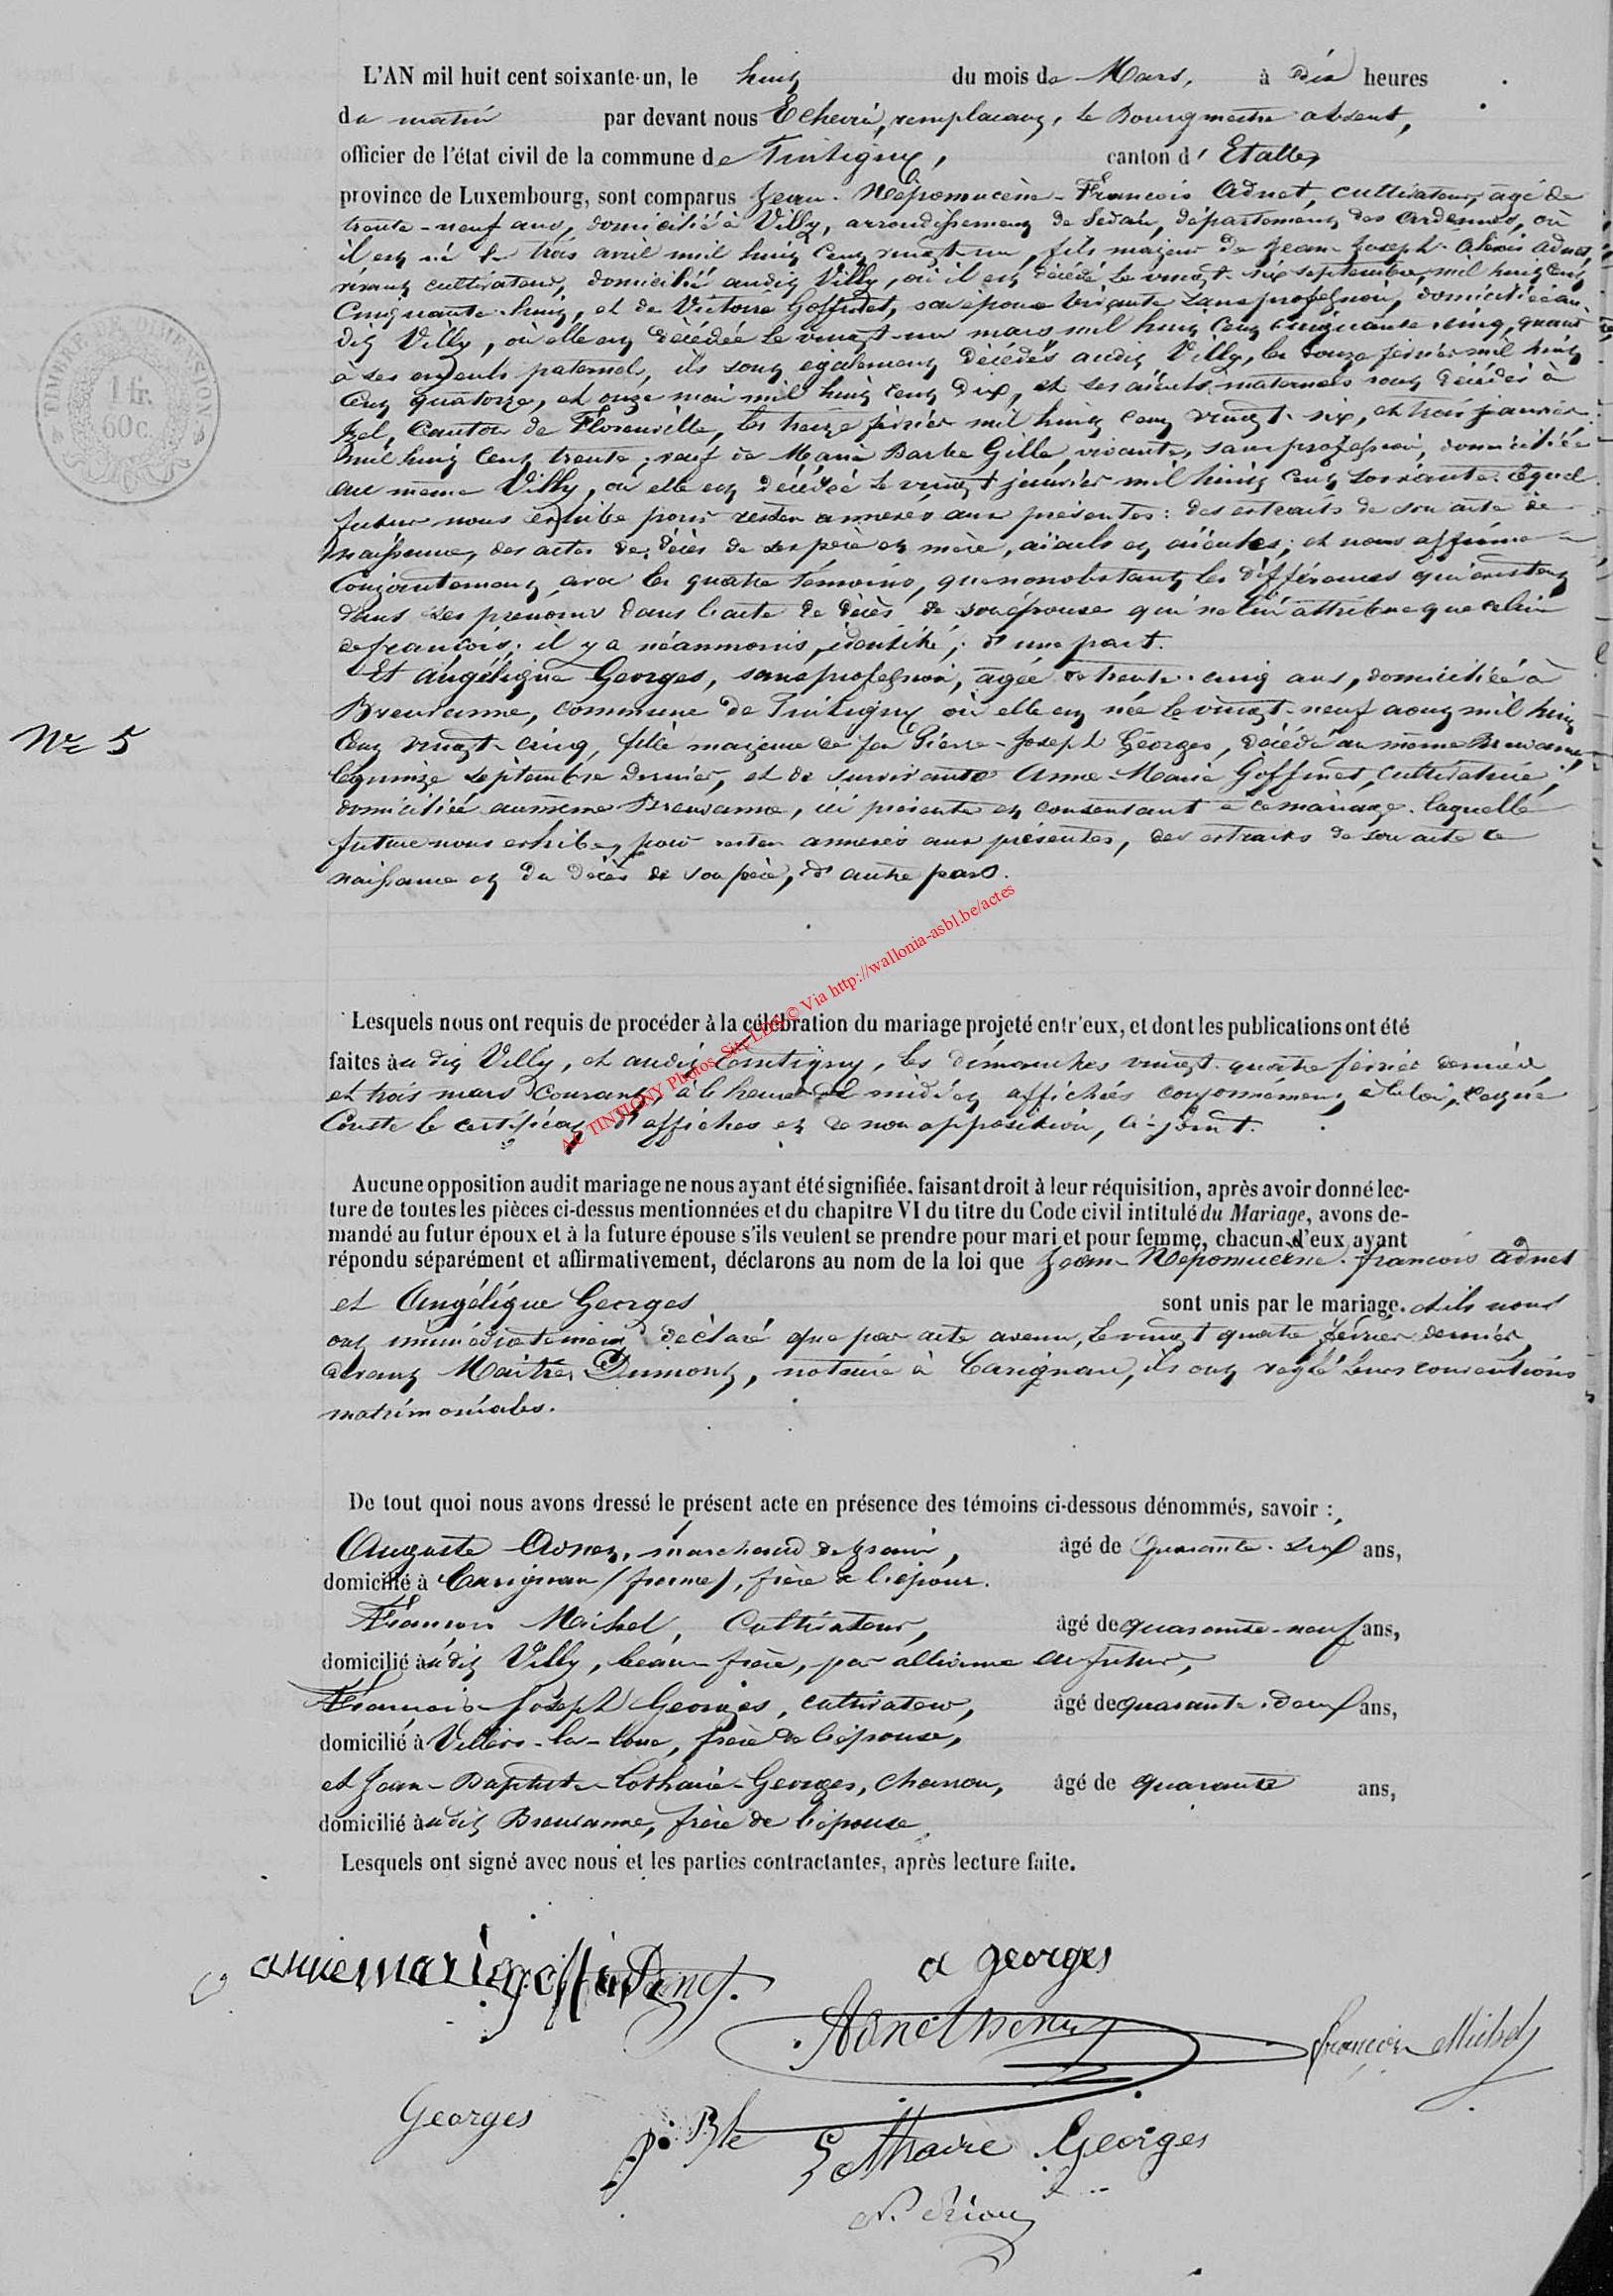 L'AN mil huit cent soixante-un, le huit du mois de Mars, à dix heures
du matin par devant nous Echevin, remplaçant, le Bourgmestre absent,
officier de l'état civil de la commune de Tintigny, canton d' Etalle,
province de Luxembourg, sont comparus Jean-Népomucène-François Adnet, cultivateur, âgé de
trente-neuf ans, domicilié à Villy, arrondissement de Sedan, département des Ardennes, où
il est né le trois avril mil huit cent vingt-un, fils majeur de Jean-Joseph-Alexis Adnet,
vivant cultivateur, domicilié audit Villy, où il est décédé le vingt-six septembre mil huit cent
cinquante-huit, et de Victoire Goffinet, son épouse vivante sans profession, domiciliée au
dit Villy, où elle est décédée le vingt-un mars mil huit cent cinquante-cinq, quant
à ses aïeuls paternels, ils sont également décédés audit Villy, les douze février mil huit
cent quatorze, et onze mai mil huit cent dix, et ses aïeuls maternels sont décédés à
Izel, canton de Florenville, les treize février mil huit cent vingt-six, et trois janvier
mil huit cent trente; veuf de Marie Barbe Gille, vivante, sans profession, domiciliée
au même Villy, où elle est décédée le vingt janvier mil huit cent soixante. Lequel
futur nous exhibe pour rester annexés aux présentes: des extraits de son acte de
naissance, des actes de décès de ses père et mère, aïeuls et aïeules; et nous affirme
conjointement avec les quatre témoins, que nonobstant les différences qui existent
dans ses prénoms dans l'acte de décès de son épouse qui ne lui attribue que celui
de françois; il y a néanmoins identité; d'une part.
Et Angélique Georges, sans profession, âgée de trente-cinq ans, domiciliée à
Breuvanne, commune de Tintigny où elle est née le vingt-neuf août mil huit
cent vingt-cinq, fille majeure de feu Pierre-Joseph Georges, décédé au même Breuvanne,
le quinze septembre dernier, et de survivante Anne-Marie Goffinet, cultivatrice,
domiciliée au même Breuvanne, ici présente et consentant à ce mariage. Laquelle
future nous exhibe, pour rester annexés aux présentes, des extraits de son acte de
naissance et du décès de son père, d'autre part.
N° 5
TIMBRE DE DIMENSION
1 fr.
60 c.
AC TINTIGNY Photos Site LDS © Via http://wallonia-asbl.be/actes
Lesquels nous ont requis de procéder à la célébration du mariage projeté entr'eux, et dont les publications ont été
faites audit Villy, et audit Tintigny, les dimanches vingt-quatre février dernier
et trois mars courant, à l'heure de midi et affichées conformément à la loi,
Conste le certificat d'affiches et de non opposition, ci-joint.
Aucune opposition audit mariage ne nous ayant été signifiée, faisant droit à leur réquisition, après avoir donné lec-
ture de toutes les pièces ci-dessus mentionnées et du chapitre VI du titre du Code civil intitulé du Mariage, avons de-
mandé au futur époux et à la future épouse s'ils veulent se prendre pour mari et pour femme, chacun d'eux ayant
répondu séparément et affirmativement, déclarons au nom de la loi que Jean-Népomucène-françois Adnet
et Angélique Georges sont unis par le mariage. et ils nous
ont immédiatement déclaré que par acte avenu, le vingt quatre février dernier,
devant Maître Dumont, notaire à Carignan, ils ont réglé leurs conventions
matrimoniales.
De tout quoi nous avons dressé le présent acte en présence des témoins ci-dessous dénommés, savoir :
Auguste Adnet, marchand de grains, âgé de quarante- ans,
domicilié à Carignan (france), frère de l'époux.
François Michel, Cultivateur, âgé de quarante-neuf ans,
domicilié audit Villy, beau-frère, par alliance du futur,
François-Joseph Georges, cultivateur, âgé de quarante-deux ans,
domicilié à Villers-la-loue, frère de l'épouse,
et Jean-Baptiste-Lothaire-Georges, charron, âgé de quarante ans,
domicilié audit Breuvanne, frère de l'épouse
Lesquels ont signé avec nous et les parties contractantes, après lecture faite.
anne marie goffinet
a georges
françois Michel
Georges
J. Bte Lothaire Georges